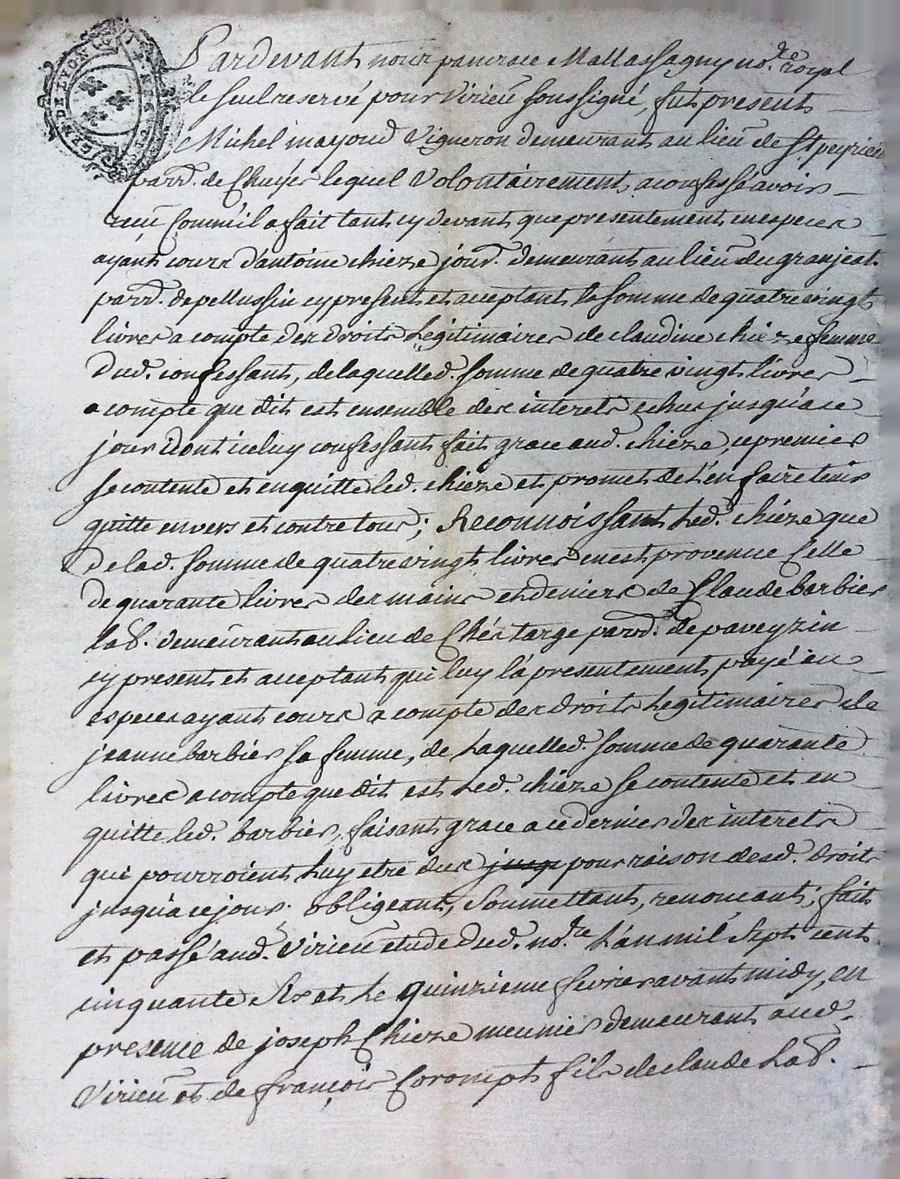 GEN. DE LYON
Pardevant nous pancrace Mallassagny no.re royal
le seul reservé pour Virieu soussigné, fut present
Michel mayoud Vigneron demeurant au lieu de St peyrieu
parr.e de Chuyer lequel Volontairement a confessé avoir
receu Comme il a fait tant cy devant que presentement en especes
ayant cours d'antoine chieze jour.r demeurant au lieu du granjeat
parr.e de pellussin cy present et acceptant la somme de quatre vingt
livres a compte des droits Légitimaires de claudine chieze femme
dud. confessant, de laquelled. somme de quatre vingt livres
a compte que dit est ensemble des interets echus jusqu'a ce
jour dont iceluy confessant fait grace aud. chieze, ce premier
se contente et en quitte led. chieze et promet de l'en faire tenir
quitte envers et contre tous; Reconnoissant Led. chieze que
de lad. somme de quatre vingt livres en est provenue Celle
de quarante livres des mains et deniers de Claude barbier
lab.r demeurant au lieu de Chéstarge parr.e de paveyzin
cy present et acceptant qui luy l'a presentement payé en
especes ayant cours a compte des droits Légitimaires de
jeanne barbier sa femme, de Laquelled. somme de quarante
livres a compte que dit est Led. chieze se contente et en
quitte led. barbier, faisant grace a ce dernier des interets
qui pourroient Luy etre dus jusqu pour raison desd. droits
jusqu'a ce jour. obligeant, Soumettant, renoncant; fait
et passé aud. Virieu etude dud. no.re L'an mil Sept cent
cinquante six et Le quinzieme fevrier avant midy, en
presence de joseph Chieze meunier demeurant aud.
Virieu et de françois Corompt fils de claude Lab.r